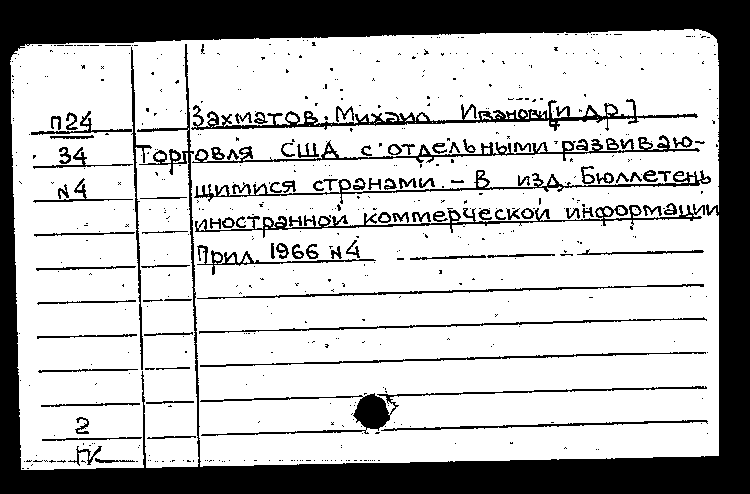 П24 Захматов, Михаил Иванови[и др.]
34 Торговля США с отдельными развиваю-
N4 щимися странами. – В изд. Бюллетень
иностранной коммерческой информации
Прил. 1966 N4
2
ПК